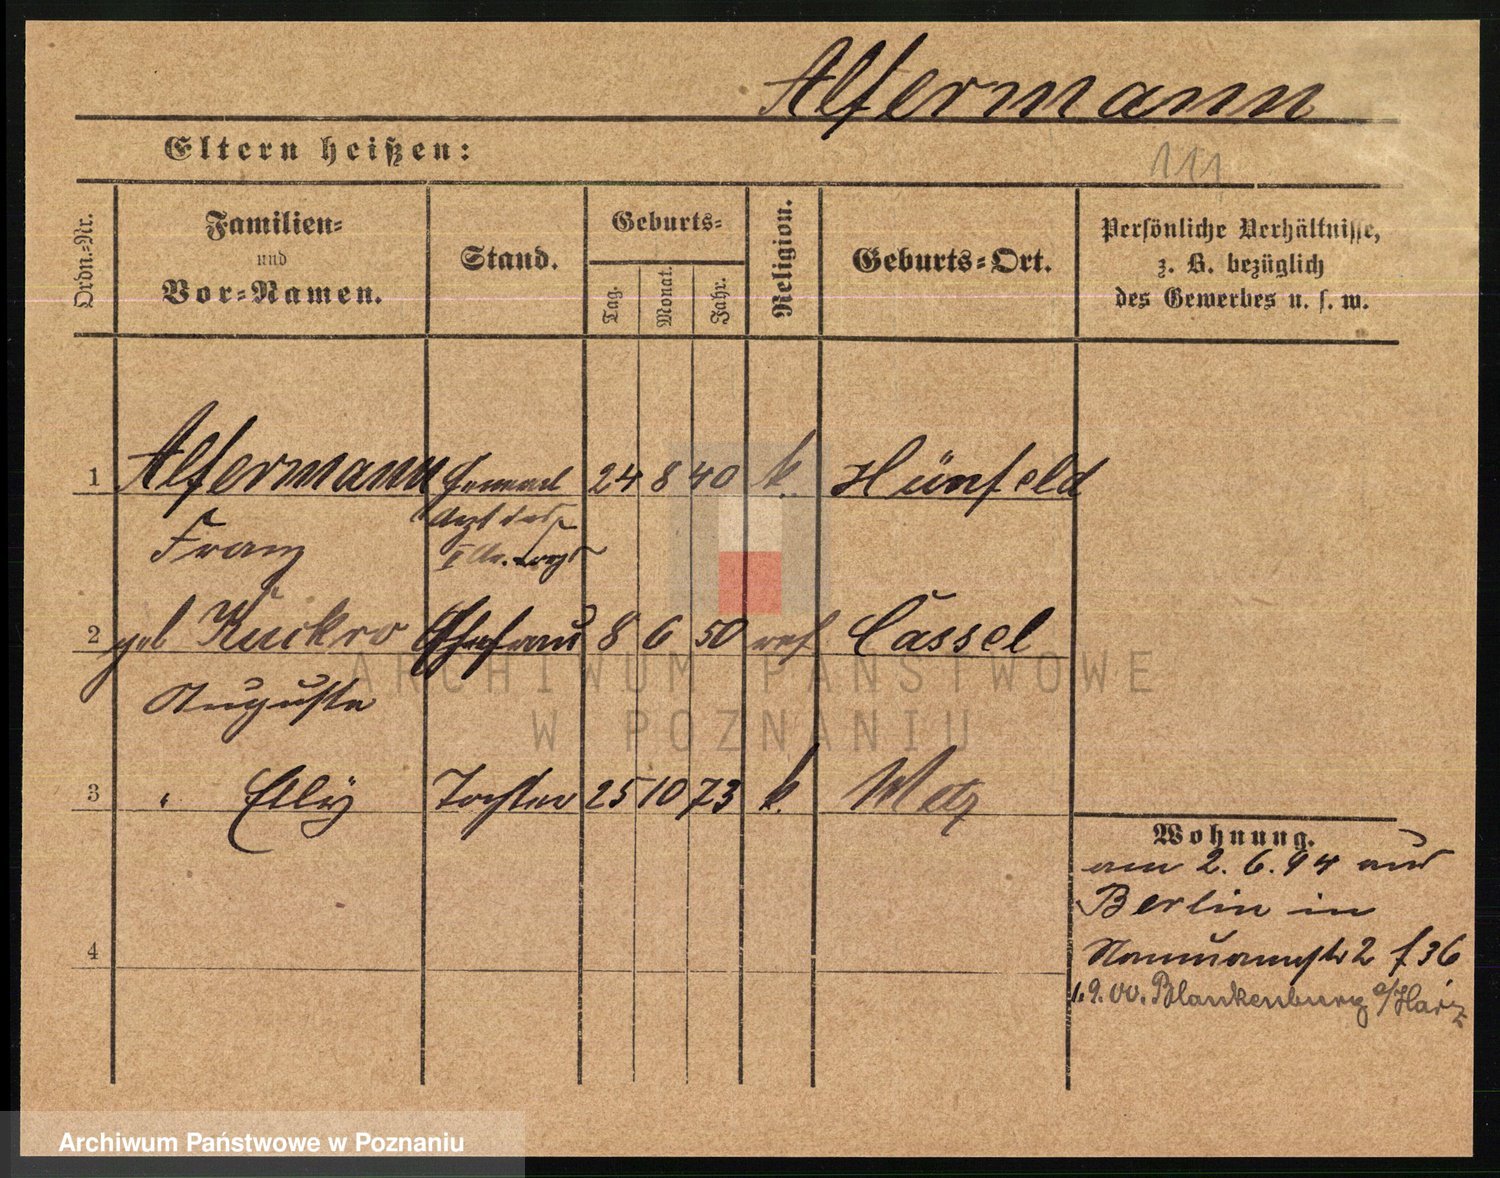 Alfermann
Eltern heißen:
111
Ordn.-Nr.
Familien-
und
Vor-Namen.
Stand.
Geburts-
Tag.
Monat.
Jahr.
Religion.
Geburts-Ort.
Persönliche Verhältnisse,
z. B. bezüglich
des Gewerbes u. s. w.
1 Alfermann General 24 8 40 k. Hünfeld
Franz Arzt des
V Ar. Corps
2 geb Kuckro Ehefrau 8 6 50 ref. Cassel
Auguste
3 " Elly Tochter 25 10 73 k. Metz
Wohnung.
am 2. 6. 94 aus
Berlin in
2 f 36
4
1. 9. 00. Blankenburg a/Harz
ARCHIWUM PAŃSTWOWE
W POZNANIU
Archiwum Państwowe w Poznaniu